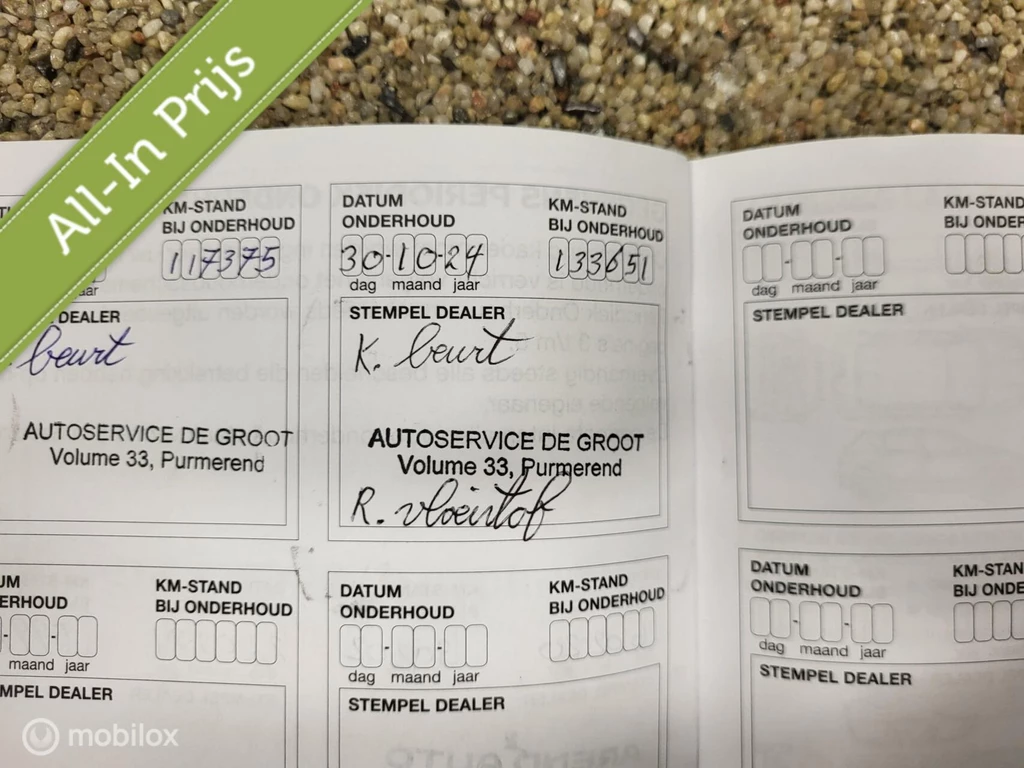 All-In Prijs
KM-STAND
BIJ ONDERHOUD
117375
jaar
DEALER
beurt
AUTOSERVICE DE GROOT
Volume 33, Purmerend
DATUM
ONDERHOUD
KM-STAND
BIJ ONDERHOUD
30-10-24
133651
dag maand jaar
STEMPEL DEALER
K. beurt
AUTOSERVICE DE GROOT
Volume 33, Purmerend
R. vloeistof
DATUM
ONDERHOUD
KM-STAND
BIJ ONDER
dag maand jaar
STEMPEL DEALER
UM
ERHOUD
KM-STAND
BIJ ONDERHOUD
maand jaar
MPEL DEALER
DATUM
ONDERHOUD
KM-STAND
BIJ ONDERHOUD
dag maand jaar
STEMPEL DEALER
DATUM
ONDERHOUD
KM-STAN
BIJ ONDE
dag maand jaar
STEMPEL DEALER
mobilox